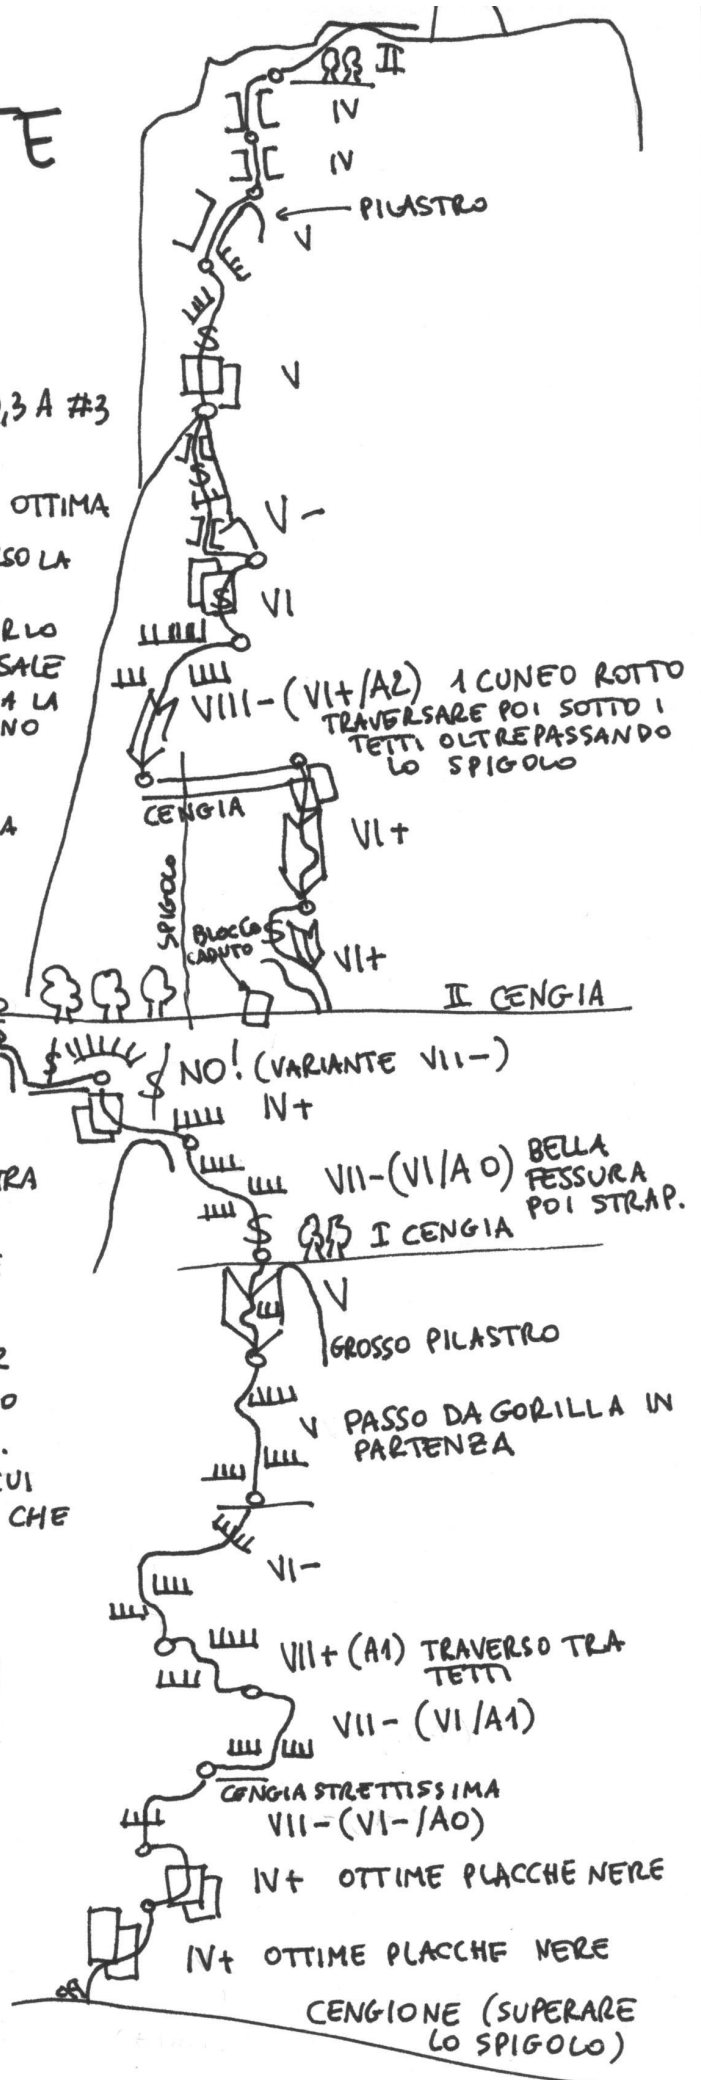 E
II
IV
IV
PILASTRO
V
V
,3 A #3
OTTIMA
V-
SO LA
VI
RLO
SALE
A LA
NO
VIII-(VI+/A2) 1 CUNEO ROTTO
TRAVERSARE POI SOTTO I
TETTI OLTREPASSANDO
LO SPIGOLO
CENGIA
A
VI+
SPIGOLO
BLOCCO
CADUTO
VI+
II CENGIA
NO! (VARIANTE VII-)
IV+
TRA
VII-(VI/A0) BELLA
FESSURA
POI STRAP.
I CENGIA
E
V
GROSSO PILASTRO
R
O
V PASSO DA GORILLA IN
PARTENZA
.
CUI
CHE
VI-
VII+(A1) TRAVERSO TRA
TETTI
VII-(VI/A1)
CENGIA STRETTISSIMA
VII-(VI-/A0)
IV+ OTTIME PLACCHE NERE
IV+ OTTIME PLACCHE NERE
CENGIONE (SUPERARE
LO SPIGOLO)